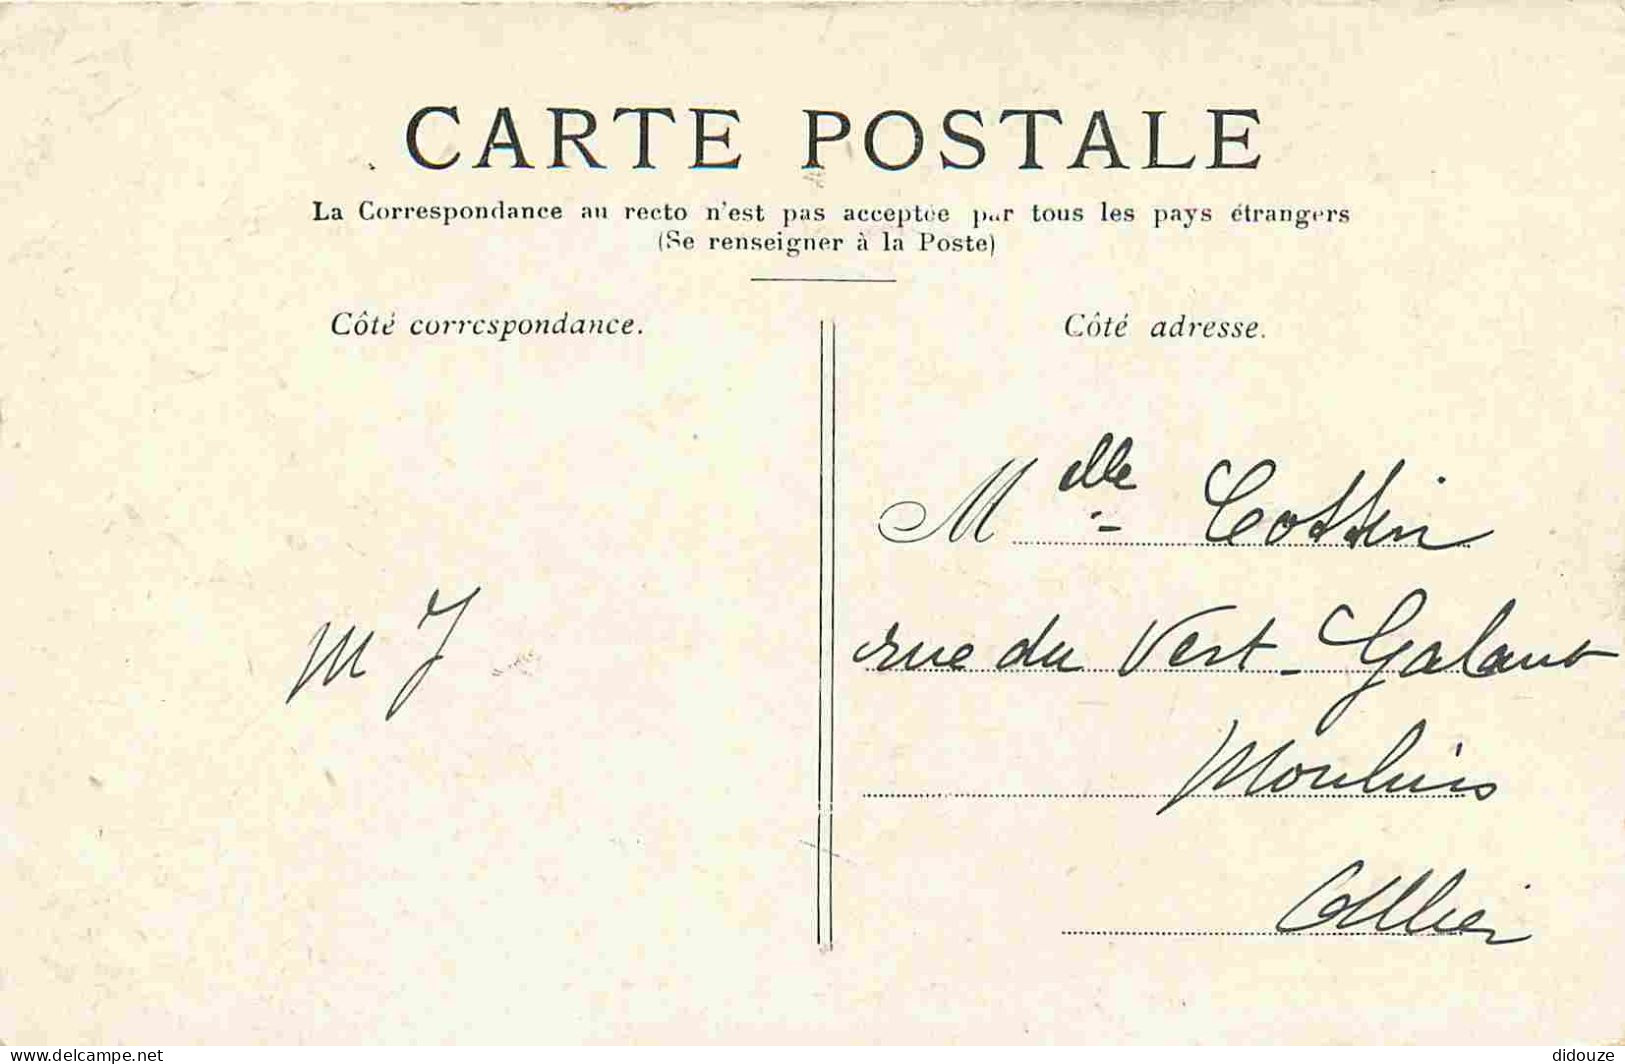 CARTE POSTALE
La Correspondance au recto n'est pas acceptée par tous les pays étrangers
(Se renseigner à la Poste)
Côté correspondance.
Côté adresse.
Melle Cottin
rue du Vert-Galant
Moulins
Allier
M J
delcampe.net
didouze